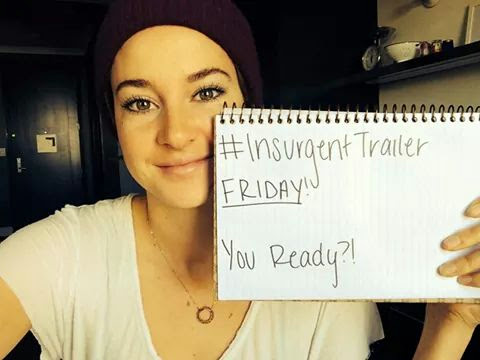 #InsurgentTrailer
FRIDAY!
You Ready?!